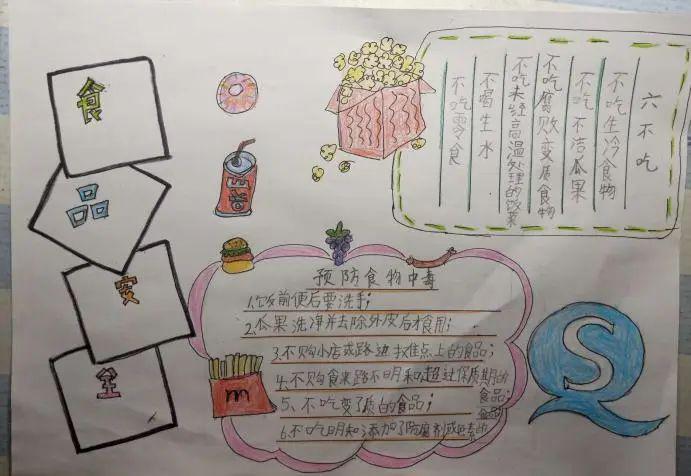 食
品
安
全
六不吃
不吃生冷食物
不吃不洁瓜果
不吃腐败变质食物
不吃未经高温处理的饭菜
不喝生水
不吃零食
预防食物中毒
1.饭前便后要洗手；
2.瓜果洗净并去除外皮后才食用；
3.不购小店或路边摊点上的食品；
4.不购食来路不明和超过保质期的
食品；
5、不吃变了质的食品；
6.不吃明知添加了防腐剂或色素的
m
S